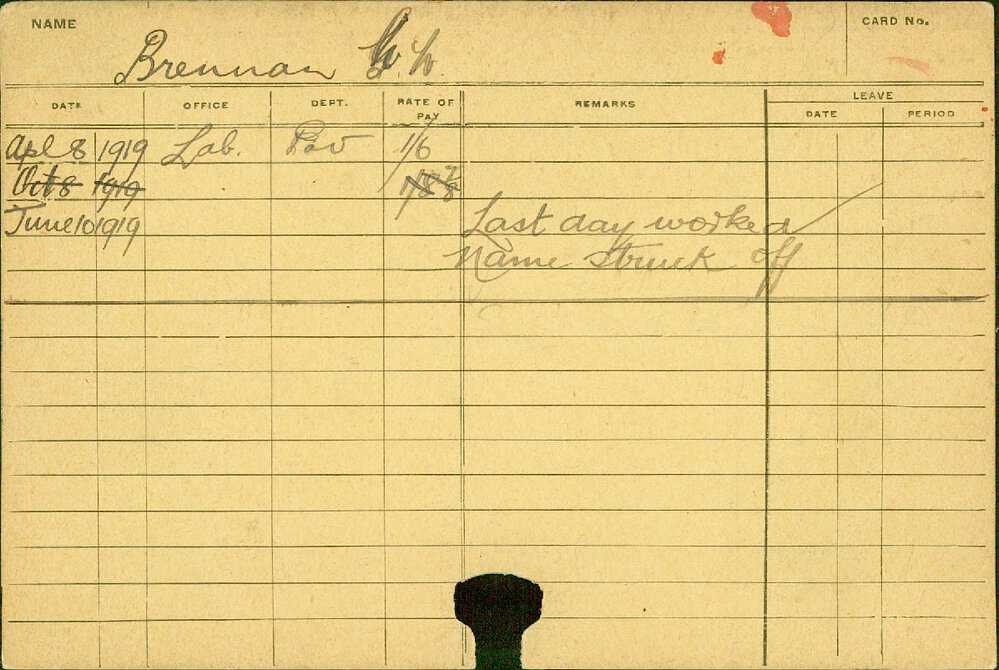 NAME
CARD No.
Brennan
DATE OFFICE DEPT. RATE OF PAY REMARKS LEAVE
DATE PERIOD
Apl 8 1919 Lab. 1/6
Oct 8 1919
June 10 1919 Last day worked
Name struck off